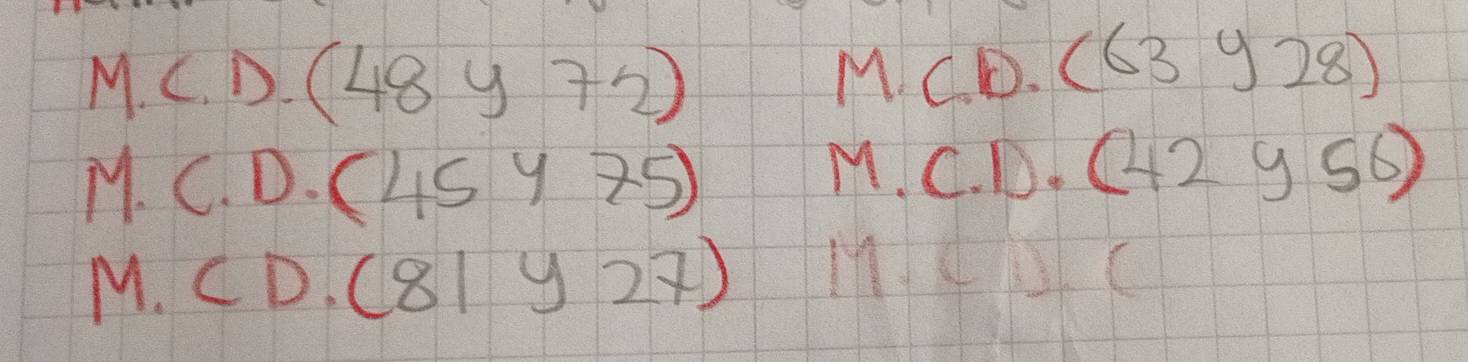 M.C.D.(48 y 72) M.C.D.(63 y 28)
M.C.D.(45 y 75) M.C.D.(42 y 56)
M.CD.(81 y 27) M.CD.(